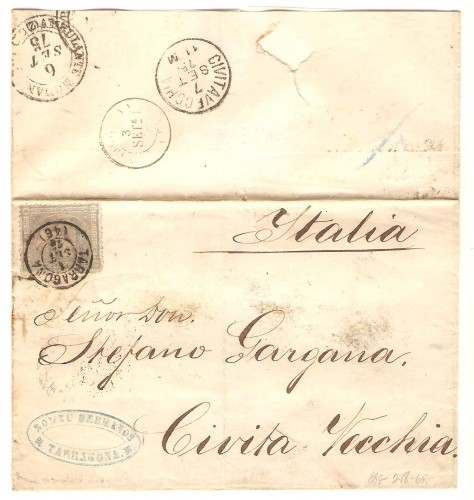 AMBULANTE
6
SET
75
CIVITAVECCHIA
7
SET
75
11 M
3
SET
Italia
TARRAGONA
SET
75
(46)
Señor Don.
Stefano Gargana.
Civita Vecchia
ROMEU HERMANOS
TARRAGONA.